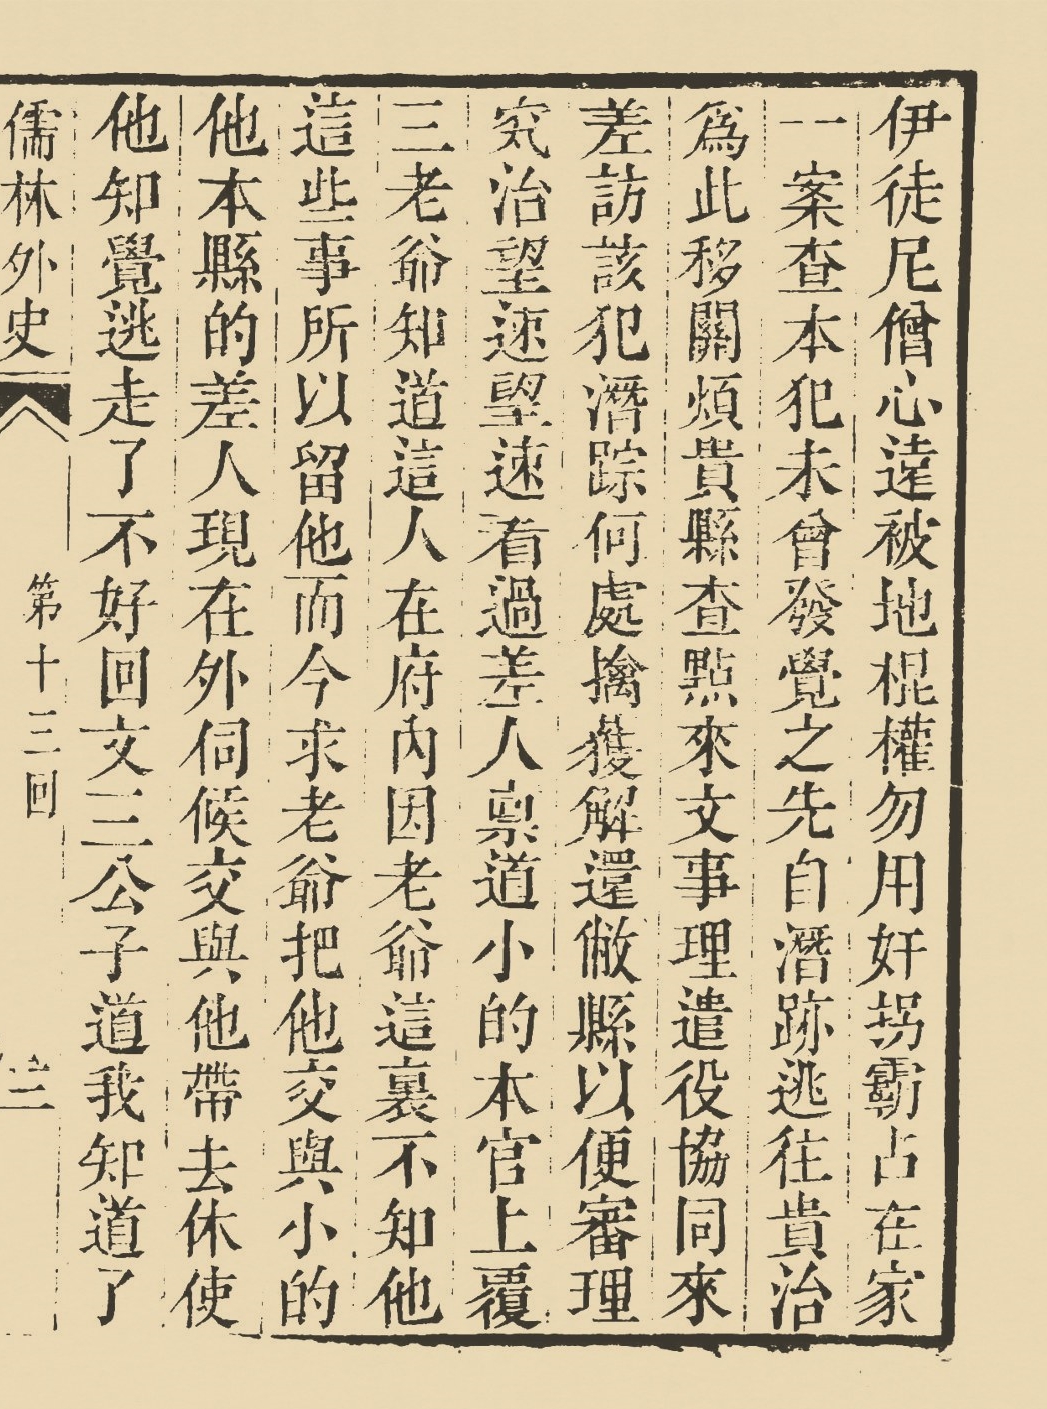 伊徒尼僧心遠被地棍權勿用奸拐霸占在家
一案查本犯未曾發覺之先自潛跡逃往貴治
爲此移關煩貴縣查㸃來文事理遣役協同來
差訪該犯潛踪何處擒獲解還敝縣以便審理
究治望速望速看過差人禀道小的本官上覆
三老爺知道這人在府內因老爺這裏不知他
這些事所以留他而今求老爺把他交與小的
他本縣的差人現在外伺候交與他帶去休使
他知覺逃走了不好回文三公子道我知道了
儒林外史
第十三回